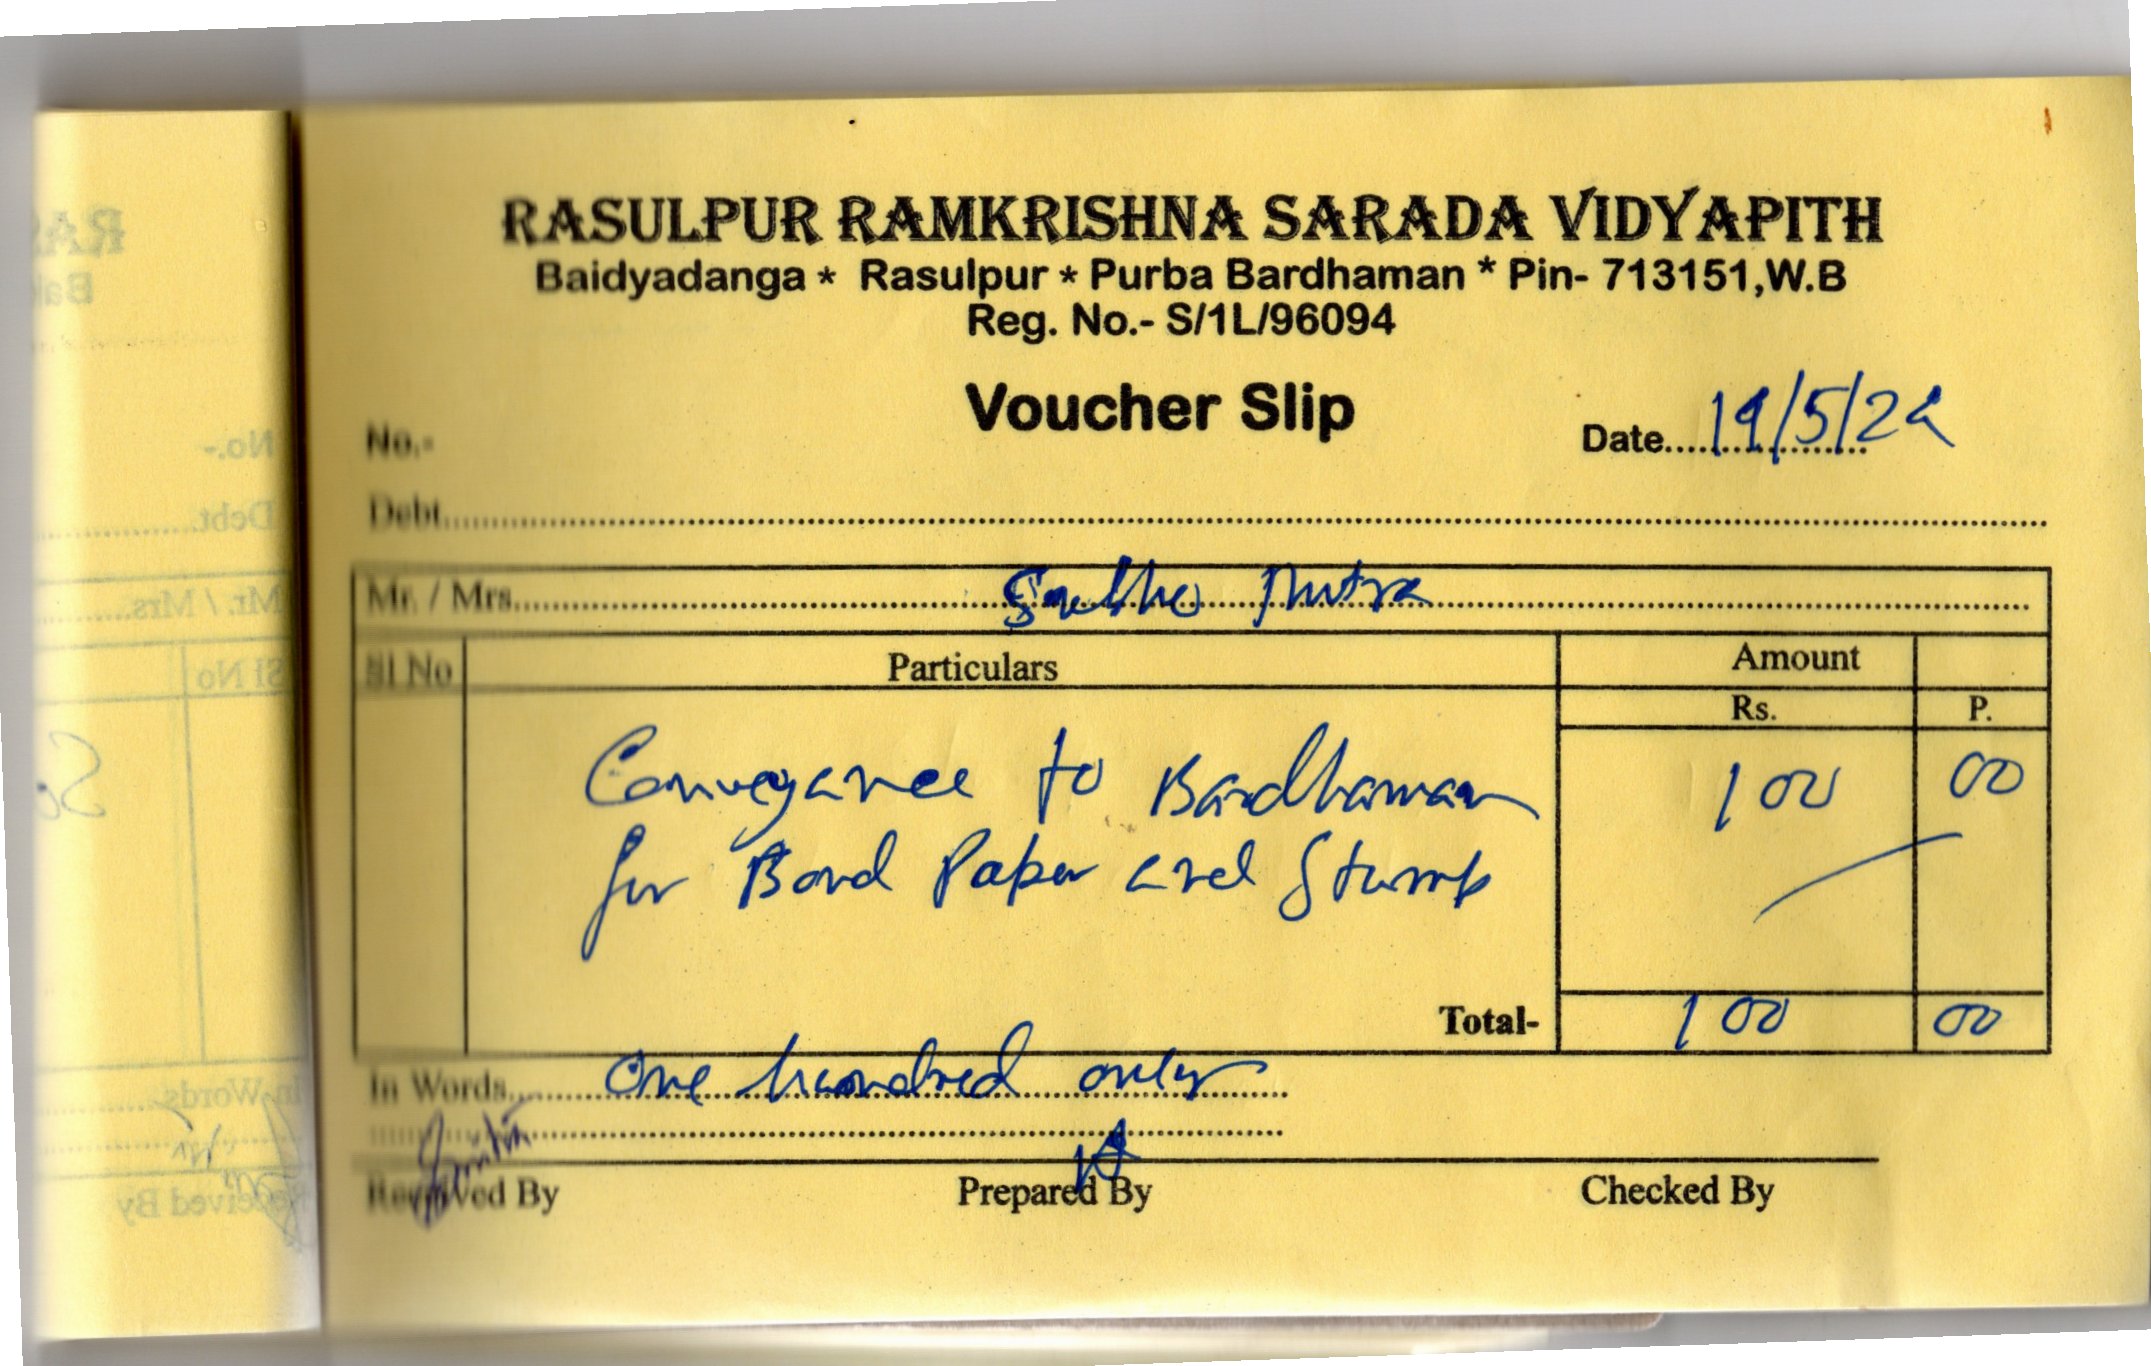 RASULPUR RAMKRISHNA SARADA VIDYAPITH
Baidyadanga * Rasulpur * Purba Bardhaman * Pin- 713151,W.B
Reg. No.- S/1L/96094
Voucher Slip
No.- Date....19/5/24
Debt
Mr. / Mrs. Mitra
Sl No Particulars Amount
Rs. P.
Conveyance to Bardhaman 100 00
for Bond Paper and Stamp
Total- 100 00
In Words One hundred only
Received By Prepared By Checked By